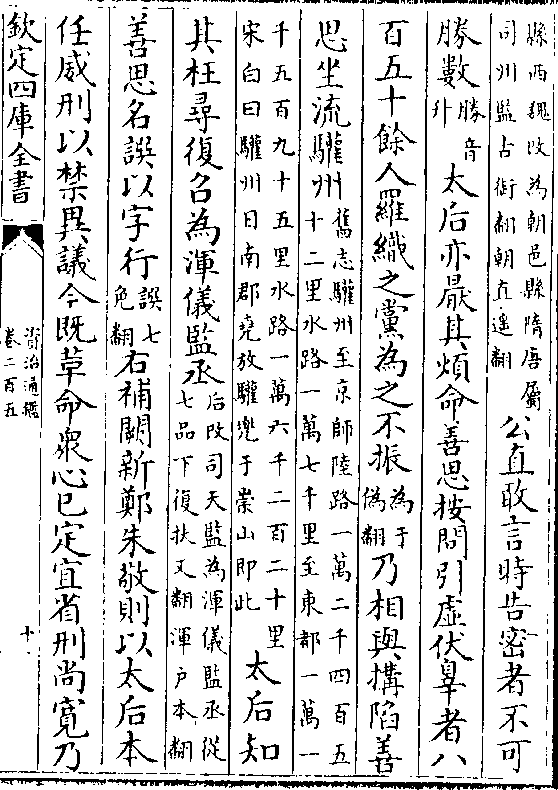 縣西魏改為朝邑縣隋唐屬
同州監古銜翻朝直遥翻公直敢言時告密者不可
勝數勝音升太后亦厭其煩命善思按問引虛伏辠者八
百五十餘人羅織之黨為之不振為于偽翻乃相與搆陷善
思坐流驩州舊志驩州至京師陸路一萬二千四百五
十二里水路一萬七千里至東都一萬一
千五百九十五里水路一萬六千二百二十里
宋白曰驩州日南郡堯放驩兜于崇山即此太后知
其枉尋復召為渾儀監丞后改司天監為渾儀監丞從
七品下復扶又翻渾戶本翻
善思名譔以字行譔七免翻右補闕新鄭朱敬則以太后本
任威刑以禁異議今既革命衆心已定宜省刑尚寛乃
欽定四庫全書
資治通鑑
卷二百五
十